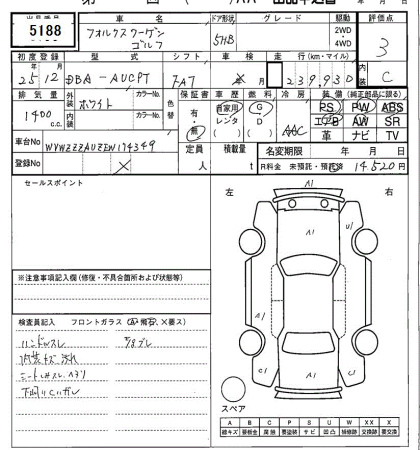 出品番号 車名 ドア形状 グレード 駆動 評価点
5188 フォルクスワーゲン ゴルフ 5HB 2WD・4WD 3
初度登録 型式 シフト 車検 走行(km・マイル) 内装
25年12月 DBA-AUCPT FA7 年 月 239,930 C
排気量 外装色 カラーNo. 色替 保証書 車歴 燃料 冷房 装備 (純正部品に限る)
1400 c.c. ホワイト 有・無 自家用 レンタ G D AAC PS PW ABS
内装色 カラーNo. エアB AW SR
革 ナビ TV
車台No WVWZZZAUZEW174349 定員 人 積載量 t 名変期限 年 月 日
登録No × R料金 未預託・預託済 14,520円
セールスポイント 左 右
※注意事項記入欄(修復・不具合箇所および状態等)
検査員記入 フロントガラス(A・飛石、×要ス)
ハンドルスレ
内装キズ汚れ
下廻りサビガレ
A1
A1
A1
A1
A1
A1
スペア
A B C P S U W X XX ×
線キズ 要板金 腐蝕 要塗装 サビ 凹凸 補修跡 交換跡 要交換